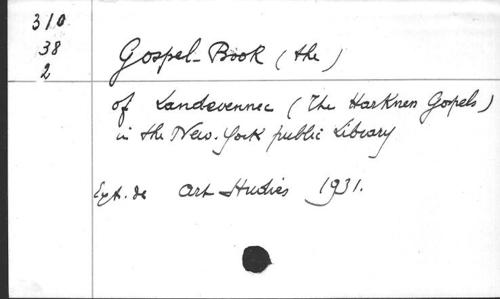 310
38
2
Gospel-Book (the)
of Landevennec (The Harkness Gospels)
in the New-York public Library
Ext. de Art Studies 1931.